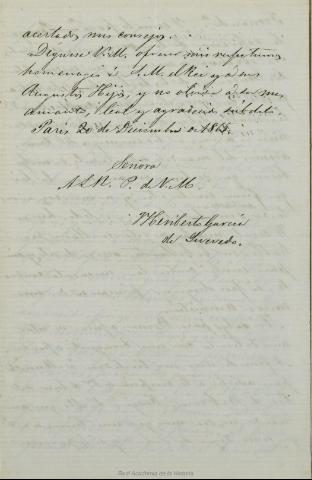 acertados mis consejos.
Dígnese V.M. ofrecer mis respetuosos
homenages á S.M. el Rei y a sus
Augustos Hijos, y no olvide á su mas
amante, leal y agradecido súbdito.
Paris 20 de Diciembre de 1868.
Señora
A L R. P. de V.M.
Heriberto García
de Quevedo.
Real Academia de la Historia